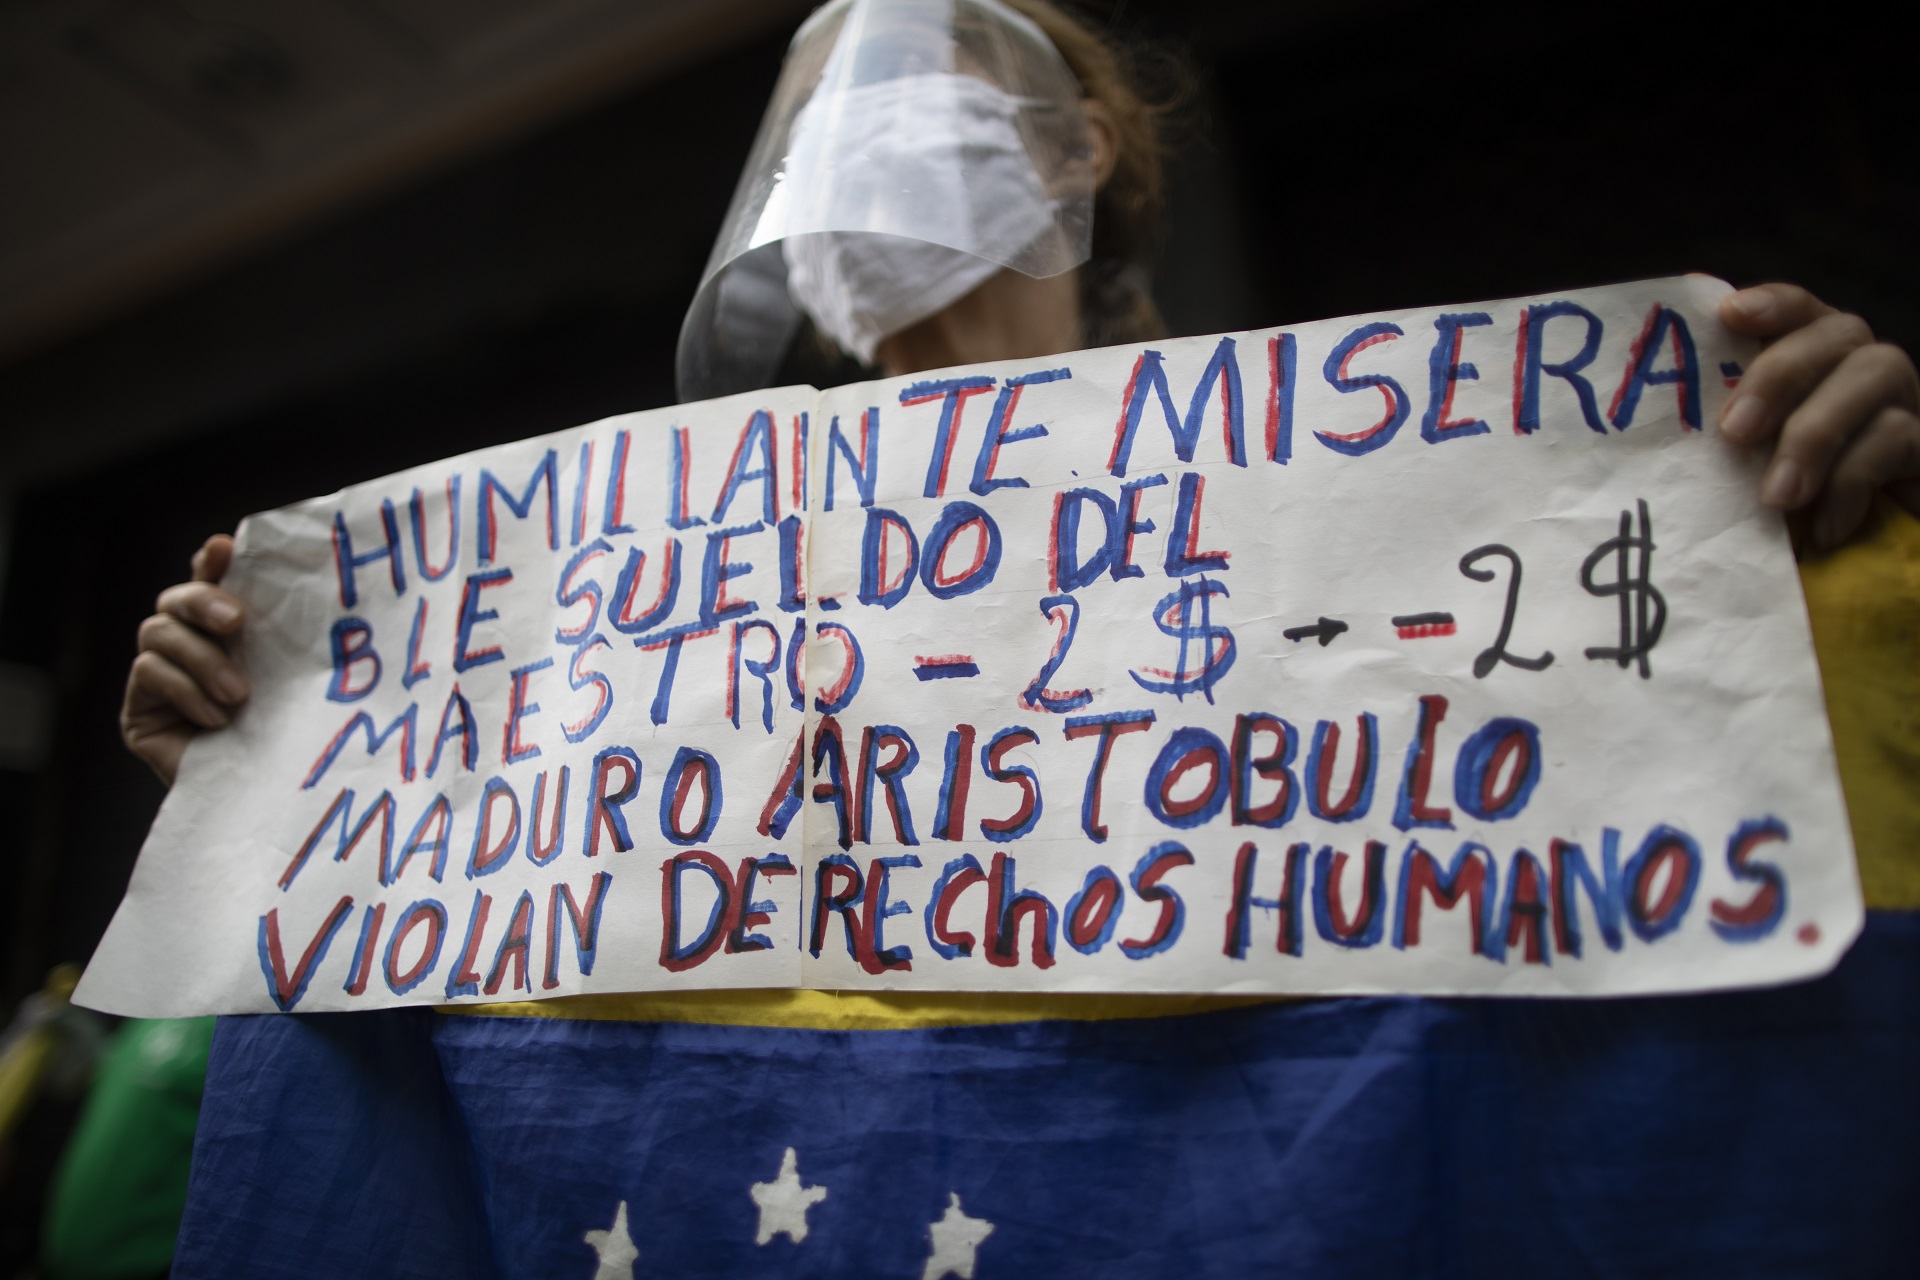 HUMILLAINTE MISERA-
BLE SUELDO DEL
MAESTRO - 2 $ → - 2 $
MADURO ARISTOBULO
VIOLAN DEREChOS HUMANOS.